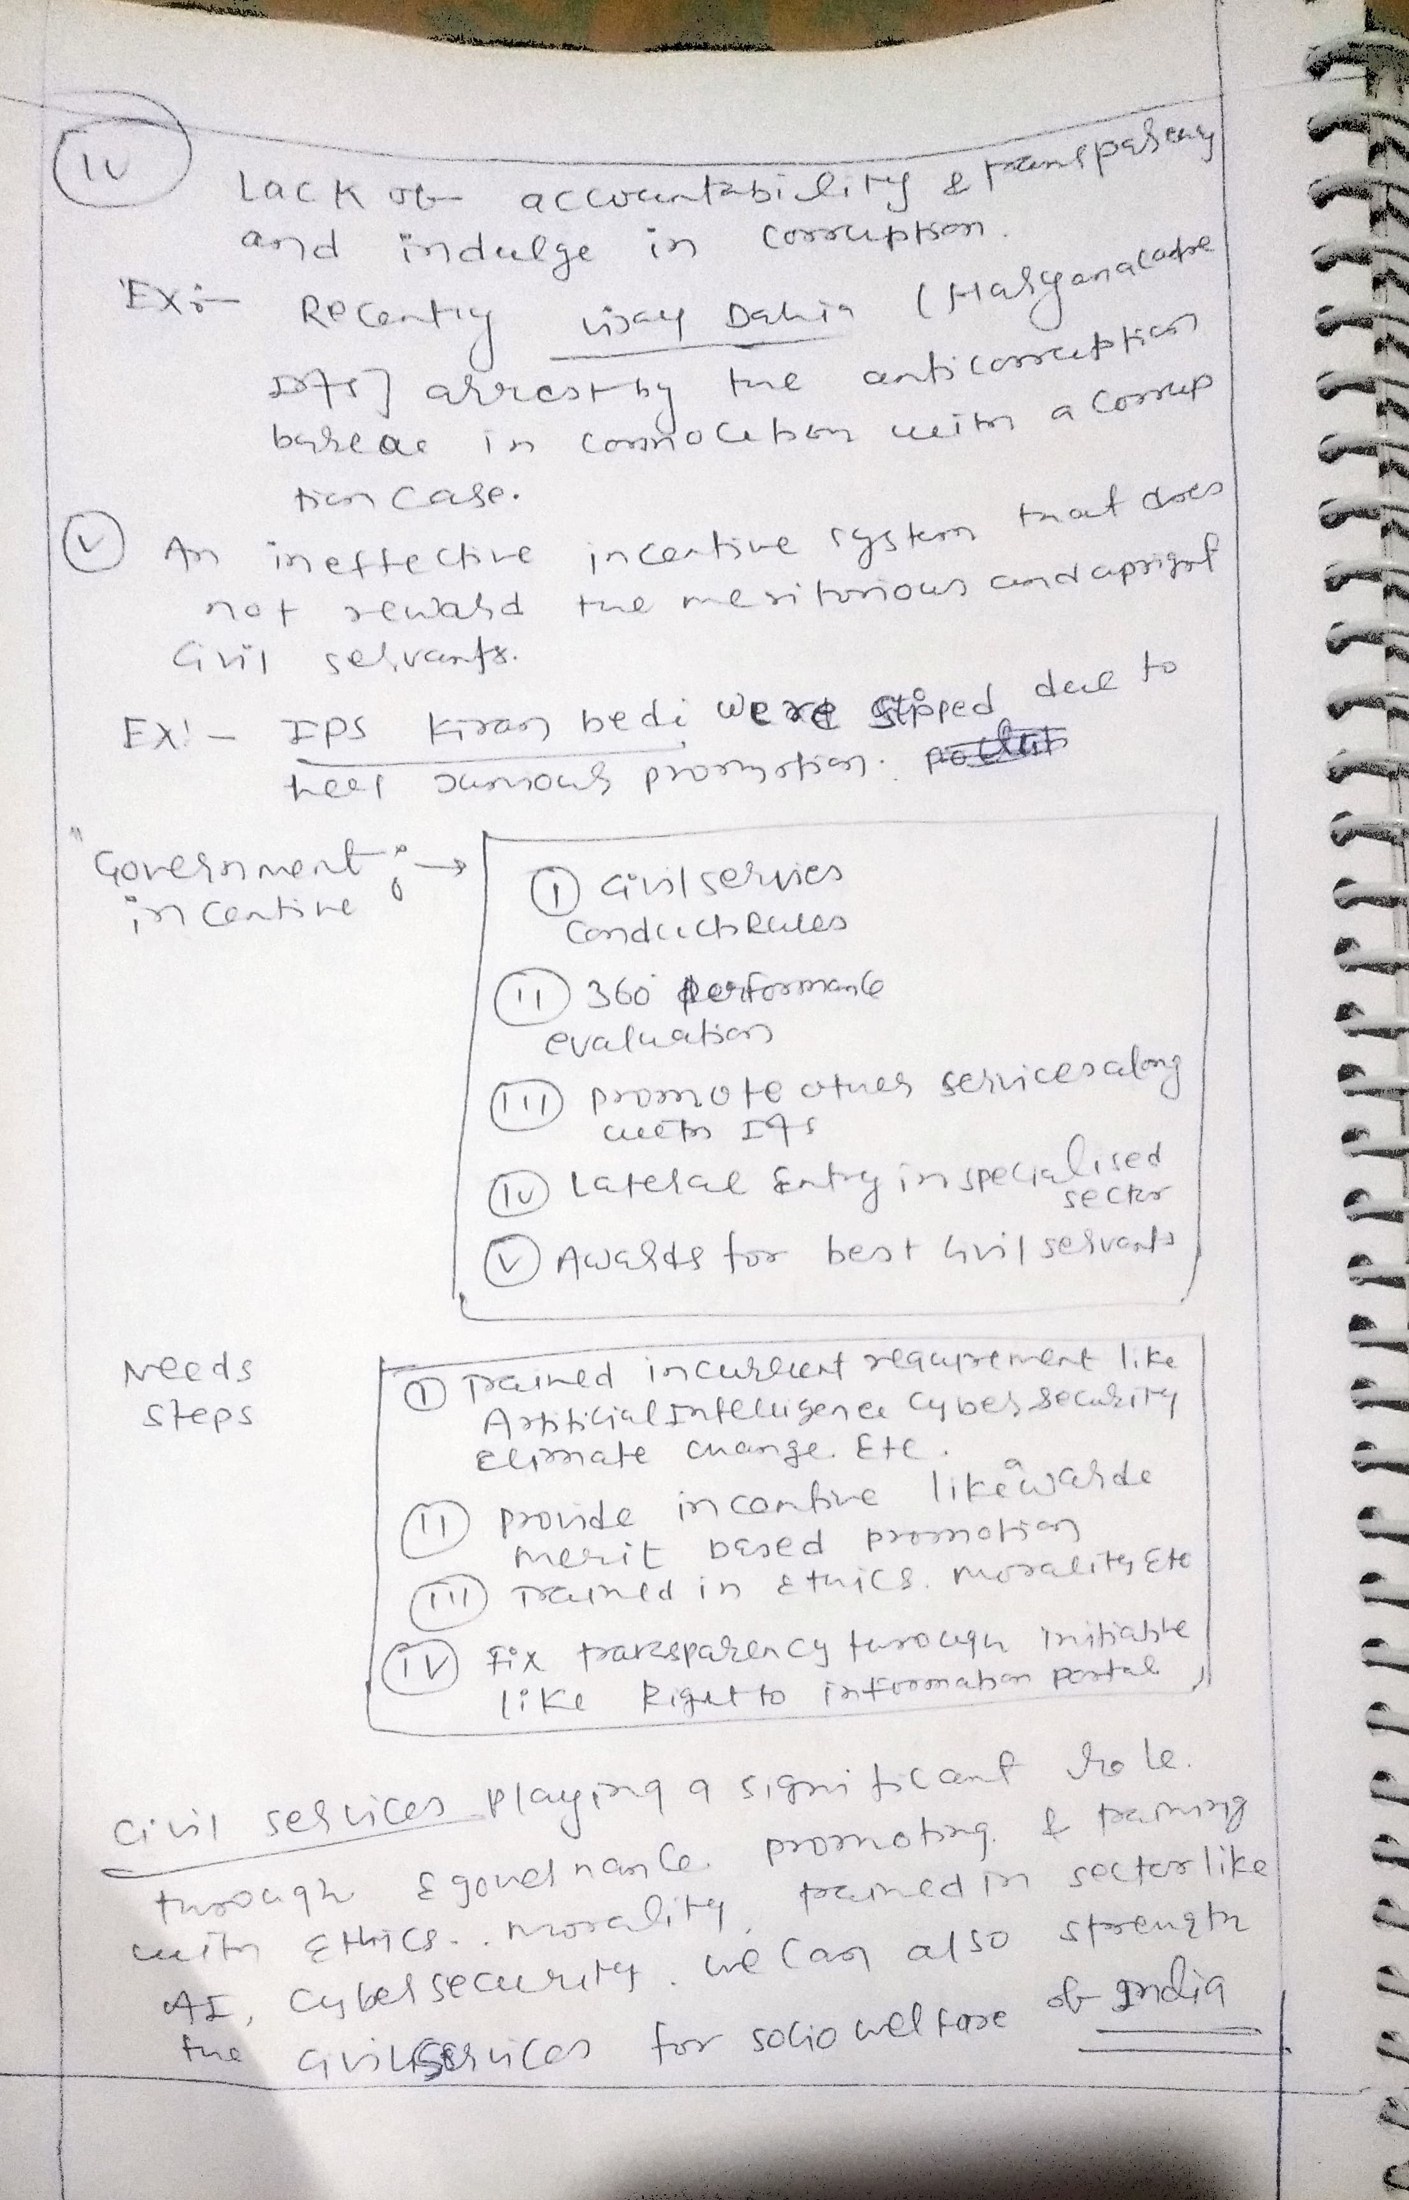 IV
Lack of accountability & transparency
and indulge in corruption.
Ex:- Recently Vijay Dahia (Haryana cadre
IAS] arrest by the anticorruption
bureau in connection with a corrup
tion case.
V An ineffective incentive system that does
not reward the meritorious and upright
Civil servants.
Ex:- IPS Kiran bedi were stiped due to
her promotion.
"Government :→
incentive
I Civil services
Conduct Rules
II 360 performance
evaluation
III promote other services along
with IAS
IV Lateral Entry in specialised
sector
V Awards for best Civil servants
Needs
steps
I Trained in current requirement like
Artificial Intelligence Cyber Security
Climate change. Etc.
II provide incentive like awards
merit based promotion
III Trained in Ethics. morality, Etc
IV Fix transparency through initiative
like Right to information portal
Civil services playing a significant role.
through Egovernance. promoting. & training
with Ethics.. morality, trained in sector like
AI, Cybersecurity. we can also strength
the civil Services for socio welfare of India